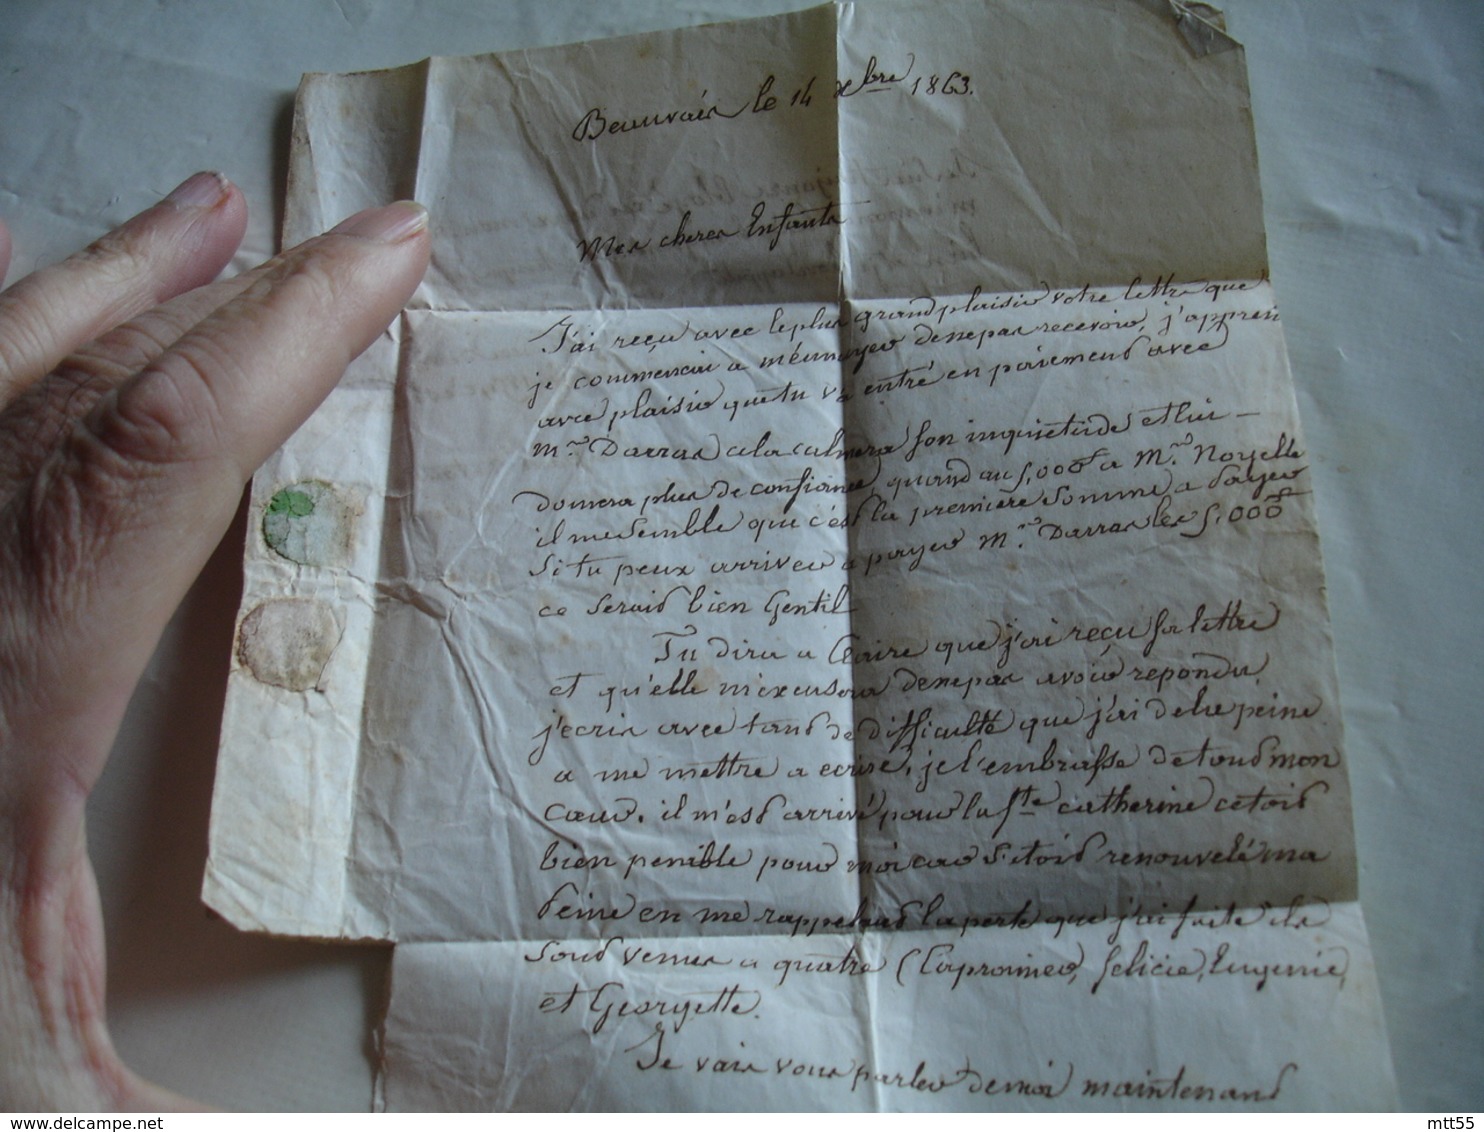 Beauvais le 14 Xbre 1863.
Mes cheres Enfants
J'ai reçu avec le plus grand plaisir votre lettre que
je commencai a m'ennuyer de ne pas recevoir, j'appren
avec plaisir que tu va entré en paiement avec
Mr. Darras cela calmera son inquietude et lui
donnera plus de confiance, quand au 5,000f a Mr. Noyelle
il me semble que c'est la première somme a payer
Si tu peux arriver a payer Mr. Darras les 5,000f
ce serait bien Gentil
Tu dira a que j'ai reçu sa lettre
et qu'elle m'excusera de ne pas avoir repondu
j'ecris avec tant de difficulté que j'ai de la peine
a me mettre a ecrire, je l'embrasse de tout mon
cœur. il m'est arrivé pour la Ste catherine cetoit
bien penible pour moi car s'etoit renouvelé ma
peine en me rappelant la perte que j'ai faite, ils
sont venus a quatre ( felicie, Eugenie,
et Georgette.
Je vais vous parler de moi maintenant
mtt55